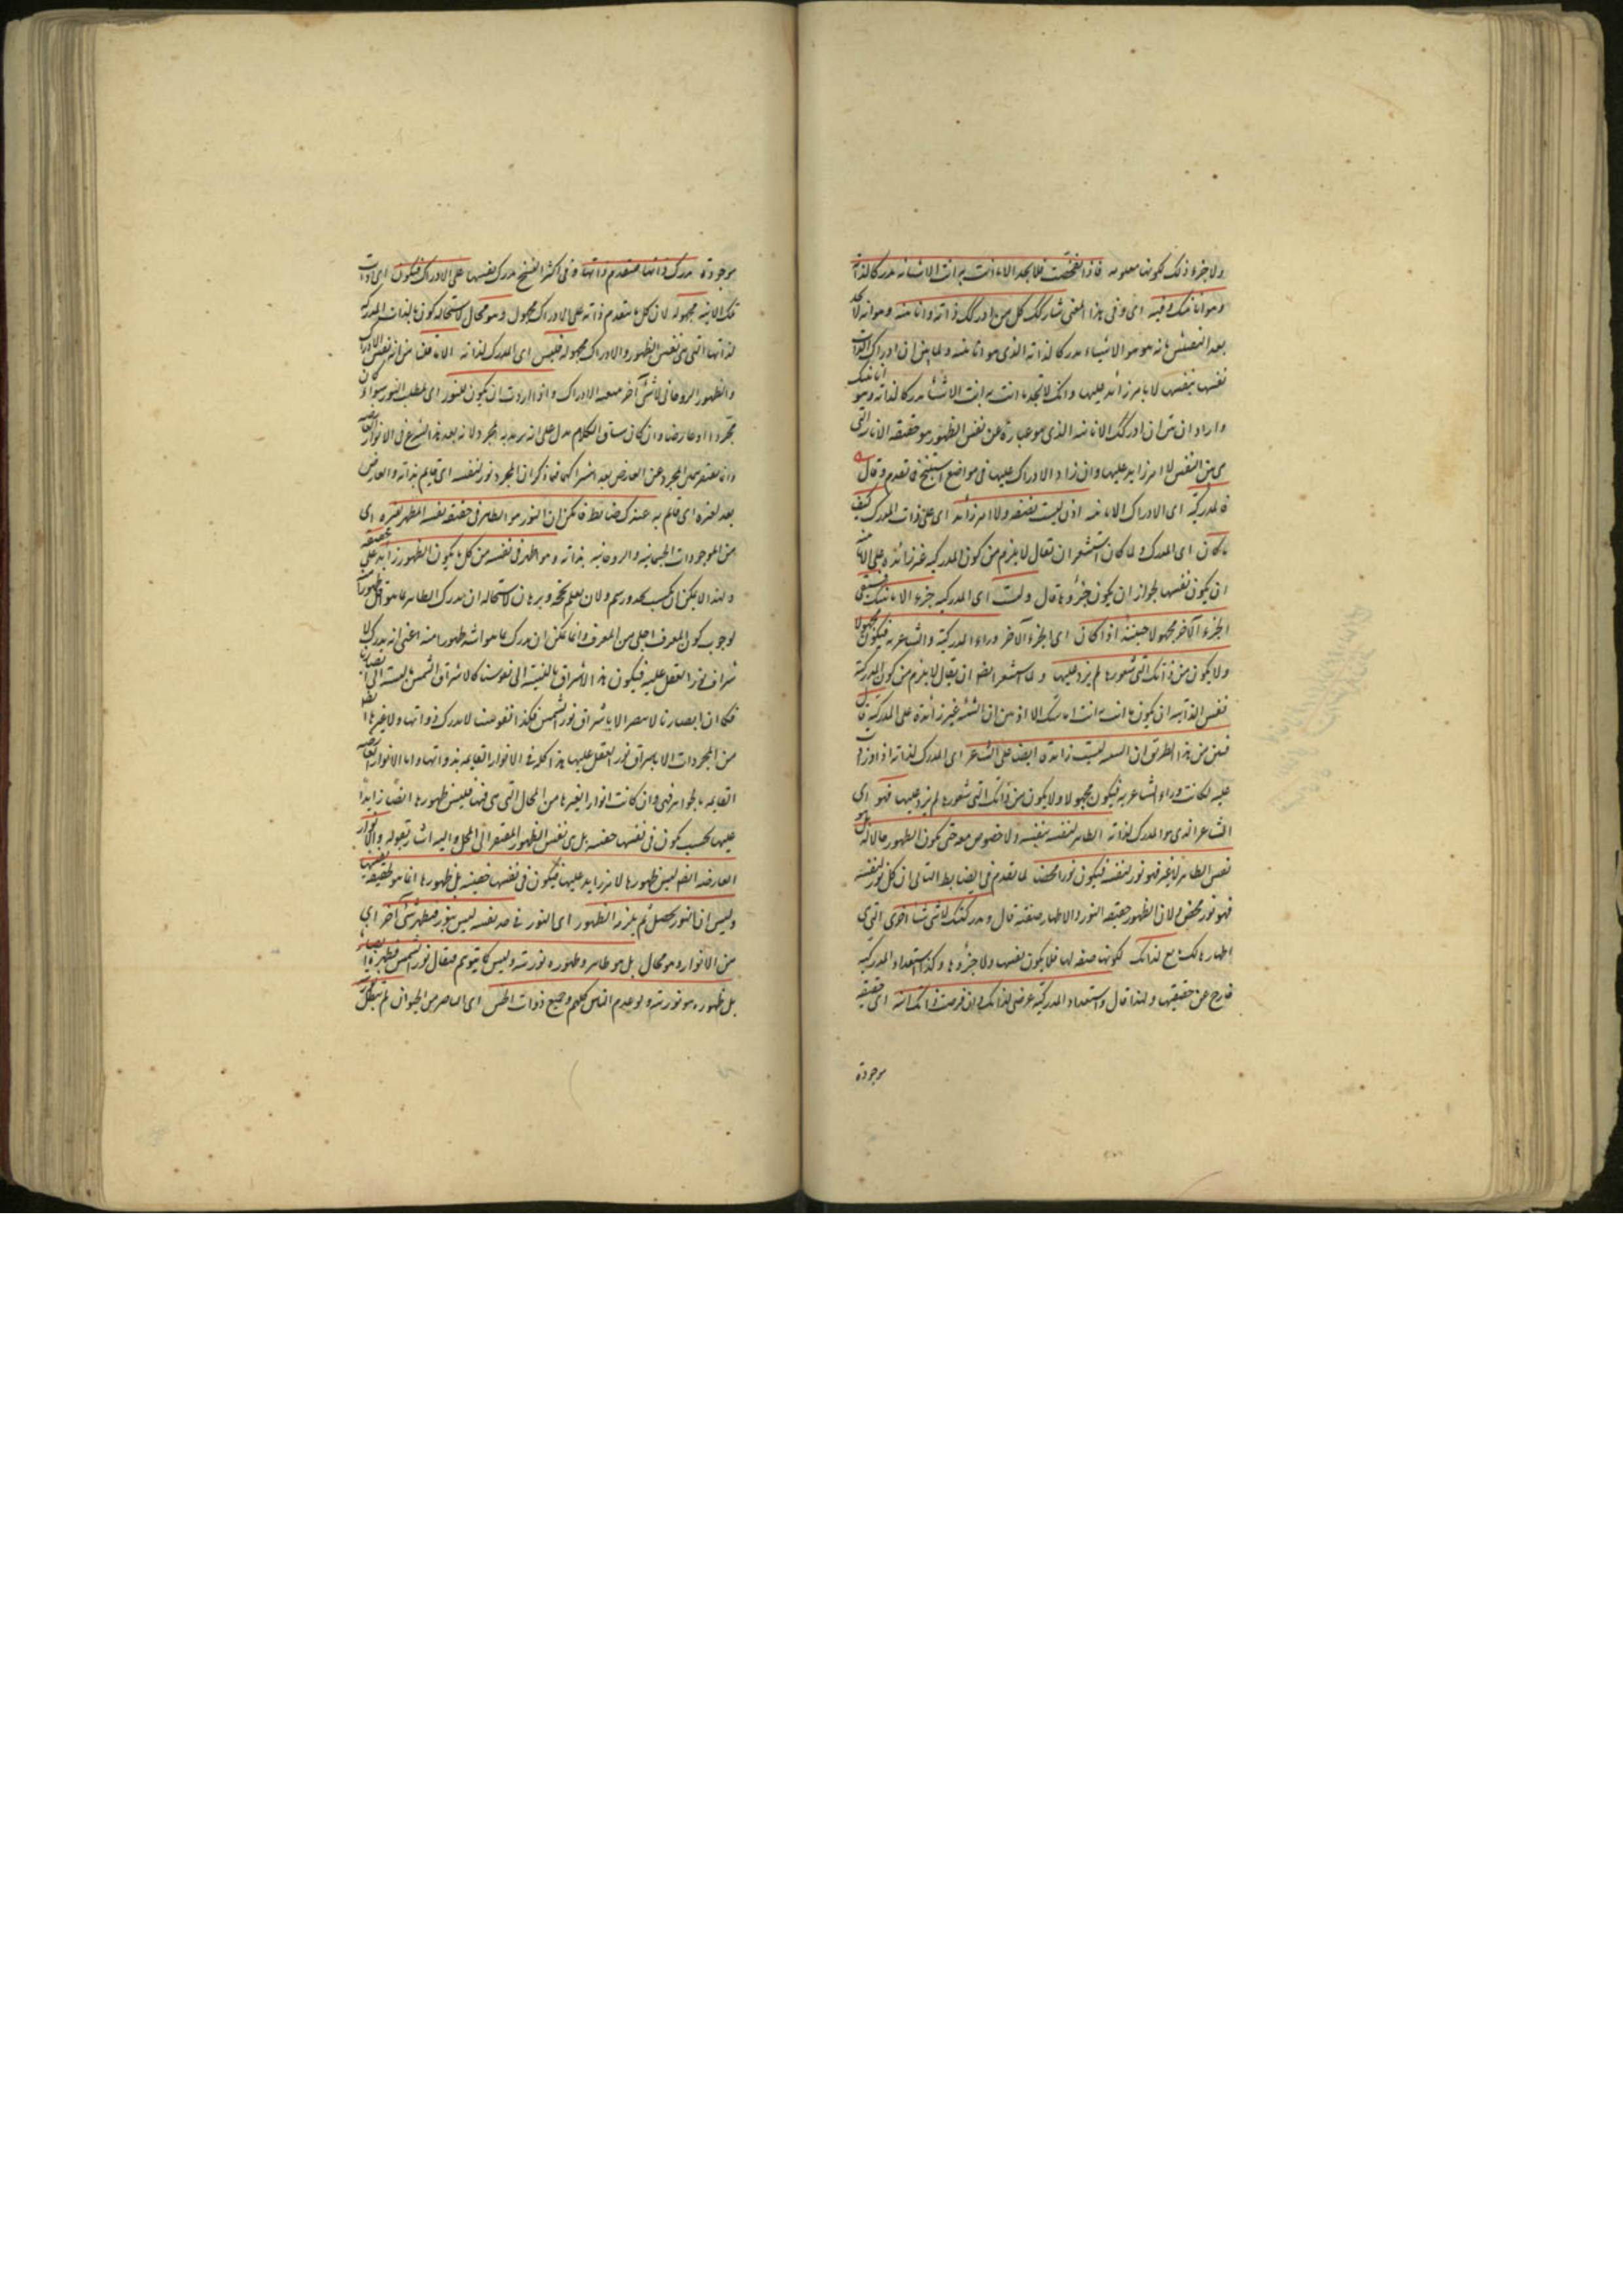 ولا جزء ذلك لكونها معلومة فاذا تفحصت فلا تجد الا ما انت به انت الا شيئا مدركا لذاته
وهو انانيتك وفيه اى وفى هذا المعنى شاركك كل من ادرك ذاته وانانيته وهو انه لا يجد
بعد التفتيش ما به هو هو الا شيئا مدركا لذاته الذى هو انانيته ولما بين ان ادراك الذات
نفسها بنفسها لا بامر زائد عليها وانك لا تجد ما انت به انت الا شيئا مدركا لذاته وهو انانيتك
واراد ان يبين ان ادراك الانانية الذى هو عبارة عن نفس الظهور هو حقيقة الانانية التى
هى عين النفس لا امر زايد عليها وان زاد الادراك عليها فى مواضع ما تقدم وقال
فالمدركية اى الادراك الانانية اذن ليست بصفة ولا امر زائد اى على ذات المدرك كيف
ما كان اى المدرك ولما كان استشعر ان يقال لا يلزم من كون المدركية غير زائدة على الانانية
ان يكون نفسها لجواز ان يكون جزؤها قال وليست اى المدركية جزء الانانيتك فيبقى
الجزء الآخر مجهولا حينئذ اذا كان اى الجزء الآخر وراء المدركية والشاعرية فيكون مجهولا
ولا يكون من ذاتك التى شعورها لم يزد عليها ولما استشعر ايضا ان يقال لا يلزم من كون المدركية
نفس الذات ان يكون ما انت به انت انانيتك الا اذ بين ان الشيئية غير زائدة على المدركية قال
فبين من هذا الطريق ان الشيئية ليست زائدة ايضا على الشاعر اى المدرك لذاته اذ لو زادت
عليه لكانت وراء الشاعرية فيكون مجهولا ولا يكون من ذاتك التى شعورها لم يزد عليها فهو اى
الشاعر الذى هو المدرك لذاته الظاهر لنفسه بنفسه ولا خصوص معه حتى يكون الظهور حالا له بل هو
نفس الظاهر لا غير فهو نور لنفسه فيكون نورا محضا لما تقدم فى الضابط التالى ان كل نور لنفسه
فهو نور محض ولان الظهور حقيقة النور والاظهار صفته قال ومدركيتك لاشياء اخرى التى
اظهارها لك تابع لذاتك لكونها صفة لها فلا يكون نفسها ولا جزؤها وكذا استعداد المدركية
خارج عن حقيقتها ولهذا قال واستعداد المدركية عرضى لذاتك وان فرضت ذاتك انية اى حقيقة
موجودة
موجودة تدرك ذاتها فتقدم ذاتها وفى اكثر النسخ تدرك نفسها على الادراك فيكون اى ذات
تلك الانية مجهولة لان كل ما يتقدم ذاته على الادراك مجهول وهو محال لاستحالة كون ما بالذات المدركة
لذاتها التى هى نفس الظهور والادراك مجهولة فليس اى المدرك لذاته الا ما قلنا من انه نفس الادراك
والظهور الروحانى لا شئ آخر يتبعه الادراك واذا اردت ان يكون للنور اى لمطلب النور سواء كان
مجردا او عارضا وان كان سياق الكلام يدل على انه يريد به المجرد ولانه بعد هذا الشرع فى الانوار العارضة
وانما يفتقر تميز المجرد عن العارض بعد اشتراكهما فيما ذكر ان المجرد نور لنفسه اى قايم بذاته والعارض
بعد لغيره اى قايم به عندك ضابط فليكن ان النور هو الظاهر فى حقيقة نفسه المظهر لغيره اى
من الموجودات الجسمانية والروحانية بذاته وهو اظهر فى نفسه من كل ما يكون الظهور زايدا على حقيقته
ولهذا لا يمكن ان يكتسب بحد ورسم ولا ان يعلم بحجة وبرهان لاستحالة ان يدرك الظاهر بما هو اقل ظهورا منه
لوجوب كون المعرف اجلى من المعرف وانما يمكن ان يدرك بما هو اشد ظهورا منه اعنى انه يدرك لا
شراق نور العقل عليه فيكون هذا الاشراق بالنسبة الى نفوسنا كاشراق الشمس بالنسبة الى ابصارنا
فكما ان ابصارنا لا تبصر الا باشراق نور الشمس فكذا نفوسنا لا تدرك ذواتها ولا غيرها ايضا
من المجردات الا باشراق نور العقل عليها هذا كله فى الانوار القايمة بذواتها واما الانوار العارضة
القايمة بالجواهر فهى وان كانت انوارا لغيرها من المحال التى هى فيها فليس ظهورها ايضا زايدا
عليها بحيث يكون فى نفسها خفية بل هى نفس الظهور المفتقر الى المحل واليه اشار بقوله والانوار
العارضة ايضا ليس ظهورها لامر زايد عليها فيكون فى نفسها خفية بل ظهورها انما هو لحقيقة نفسها
وليس ان النور يحصل ثم يلزمه الظهور اى النور فى حد نفسه ليس بنور فيظهره شئ آخر اى
من الانوار وهو محال بل هو ظاهر وظهوره نوريته وليس كما يتوهم فيقال نور الشمس يظهره ابصارنا
بل ظهوره هو نوريته ولو عدم الناس كلهم وجميع ذوات الحس اى الباصر من الحيوان لم تبطل